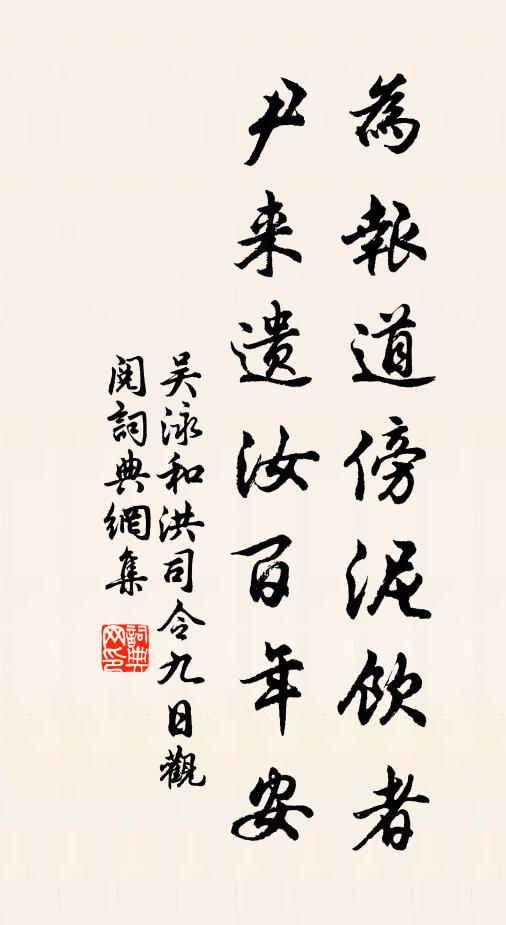 為報道傍泥飲者
尹来遺汝百年安
吴泳和洪司令九日觀
閱詞典網集
詞典網印